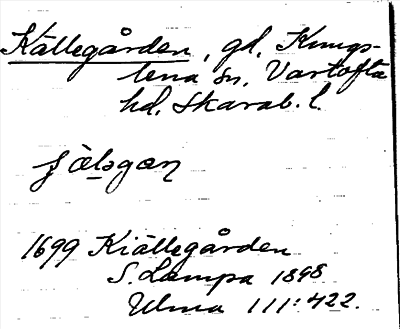 Källegården, gd. Kungs-
lena sn. Vartofta
hd. Skarab. l.
1699 Kiällegården
S. Lampa 1898
Ulma 111:422.